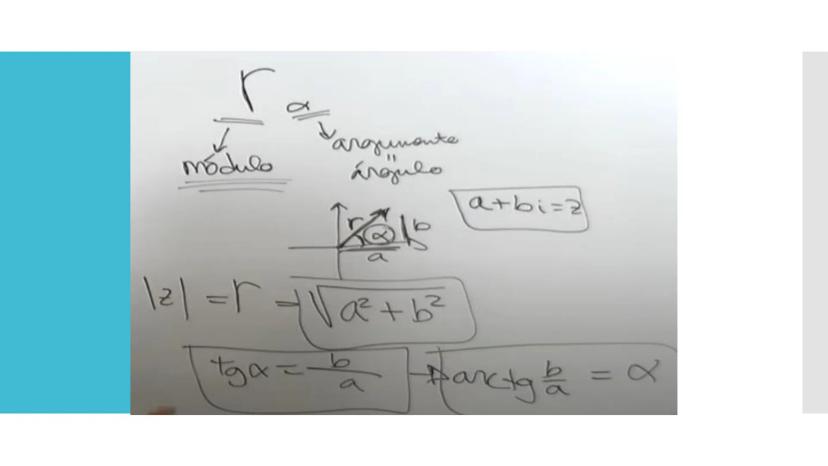 r α
módulo
argumento
=
ángulo
a+bi=z
r
α
b
a
|z| = r = √a² + b²
tgα = b/a → arctg b/a = α